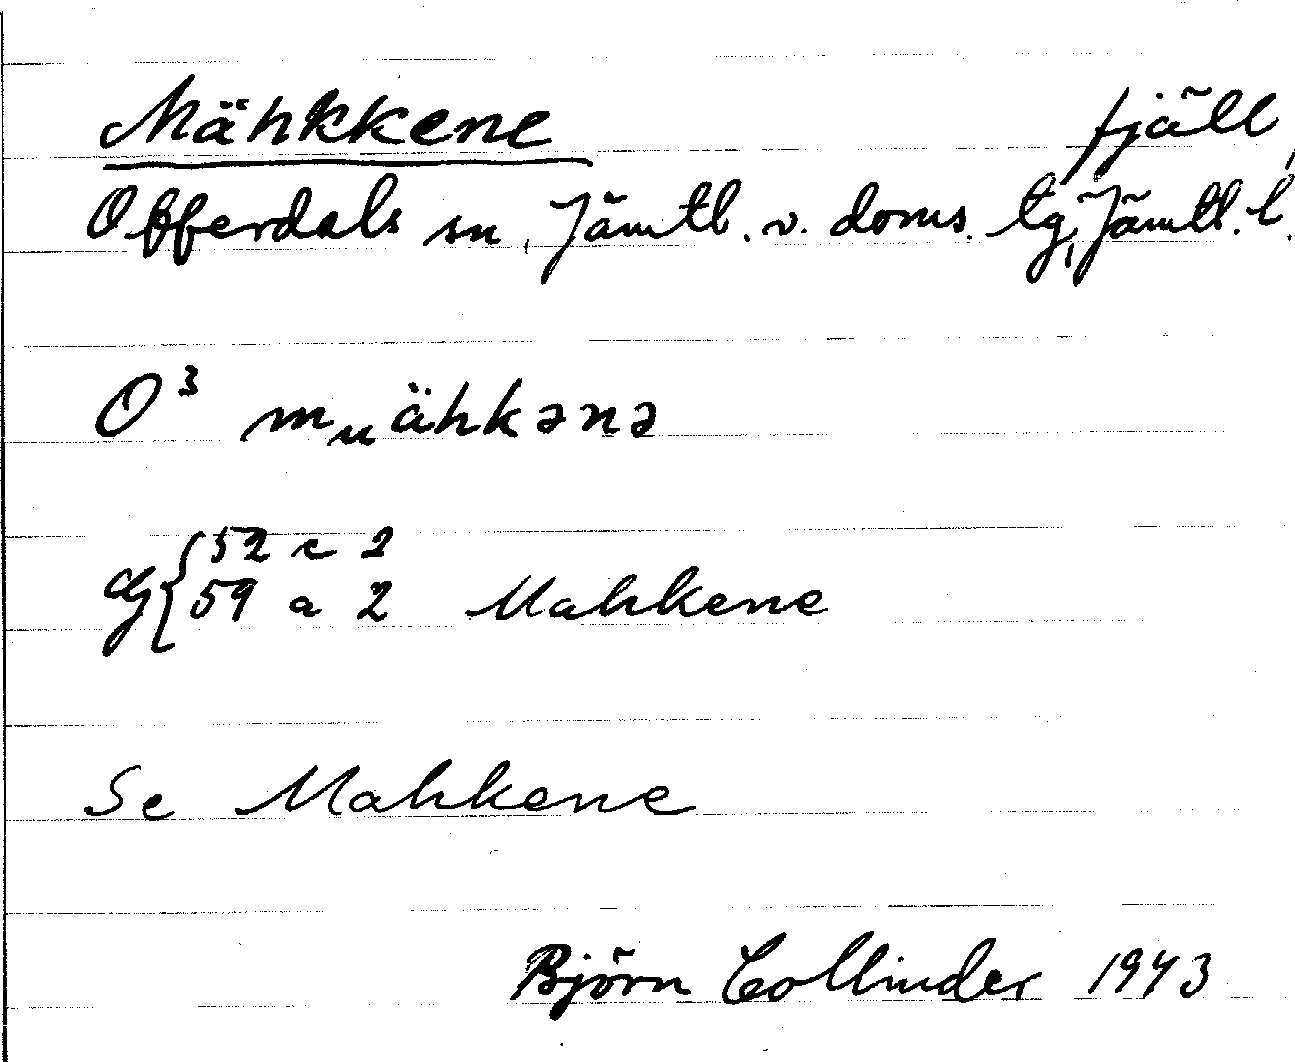 Mähkkene fjäll,
Offerdals sn, Jämtl. v. doms. tg, Jämtl. l.
O³ mᵤähkǝnǝ
G { 52 c 2
59 a 2 Mahkene
Se Mahkene
Björn Collinder 1943